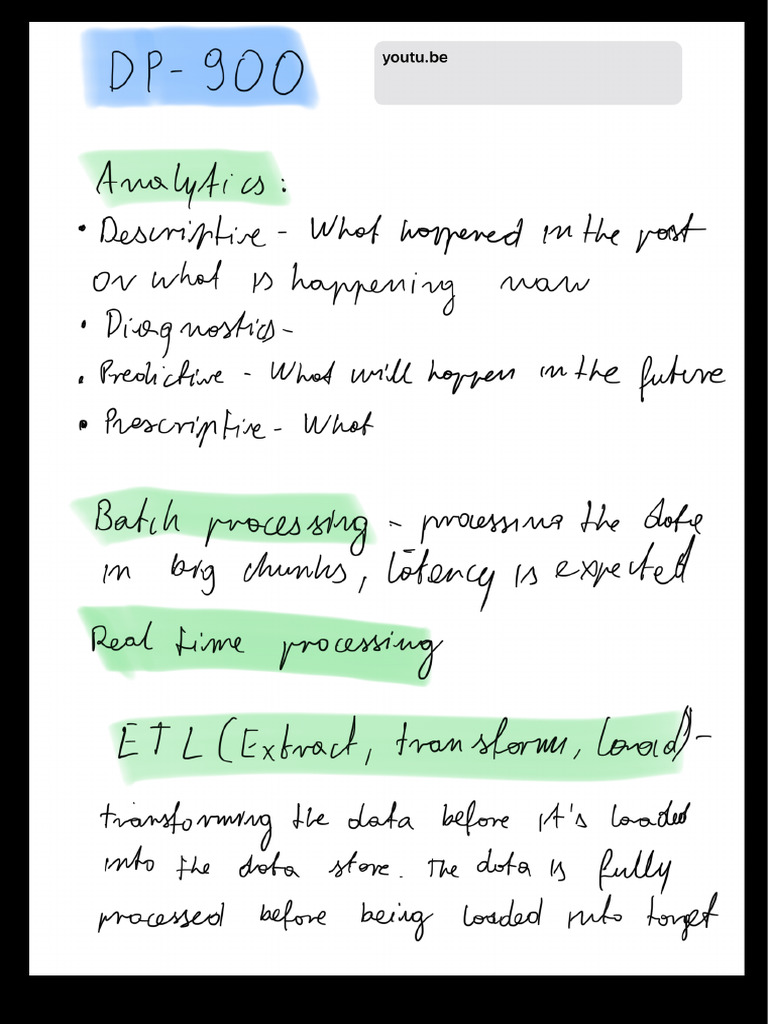 DP-900
youtu.be
Analytics:
• Descriptive - What happened in the past
or what is happening now
• Diagnostics-
• Predictive - What will happen in the future
• Prescriptive - What
Batch processing - processing the data
in big chunks, latency is expected
Real time processing
ETL (Extract, transform, load) -
transforming the data before it's loaded
into the data store. The data is fully
processed before being loaded into target